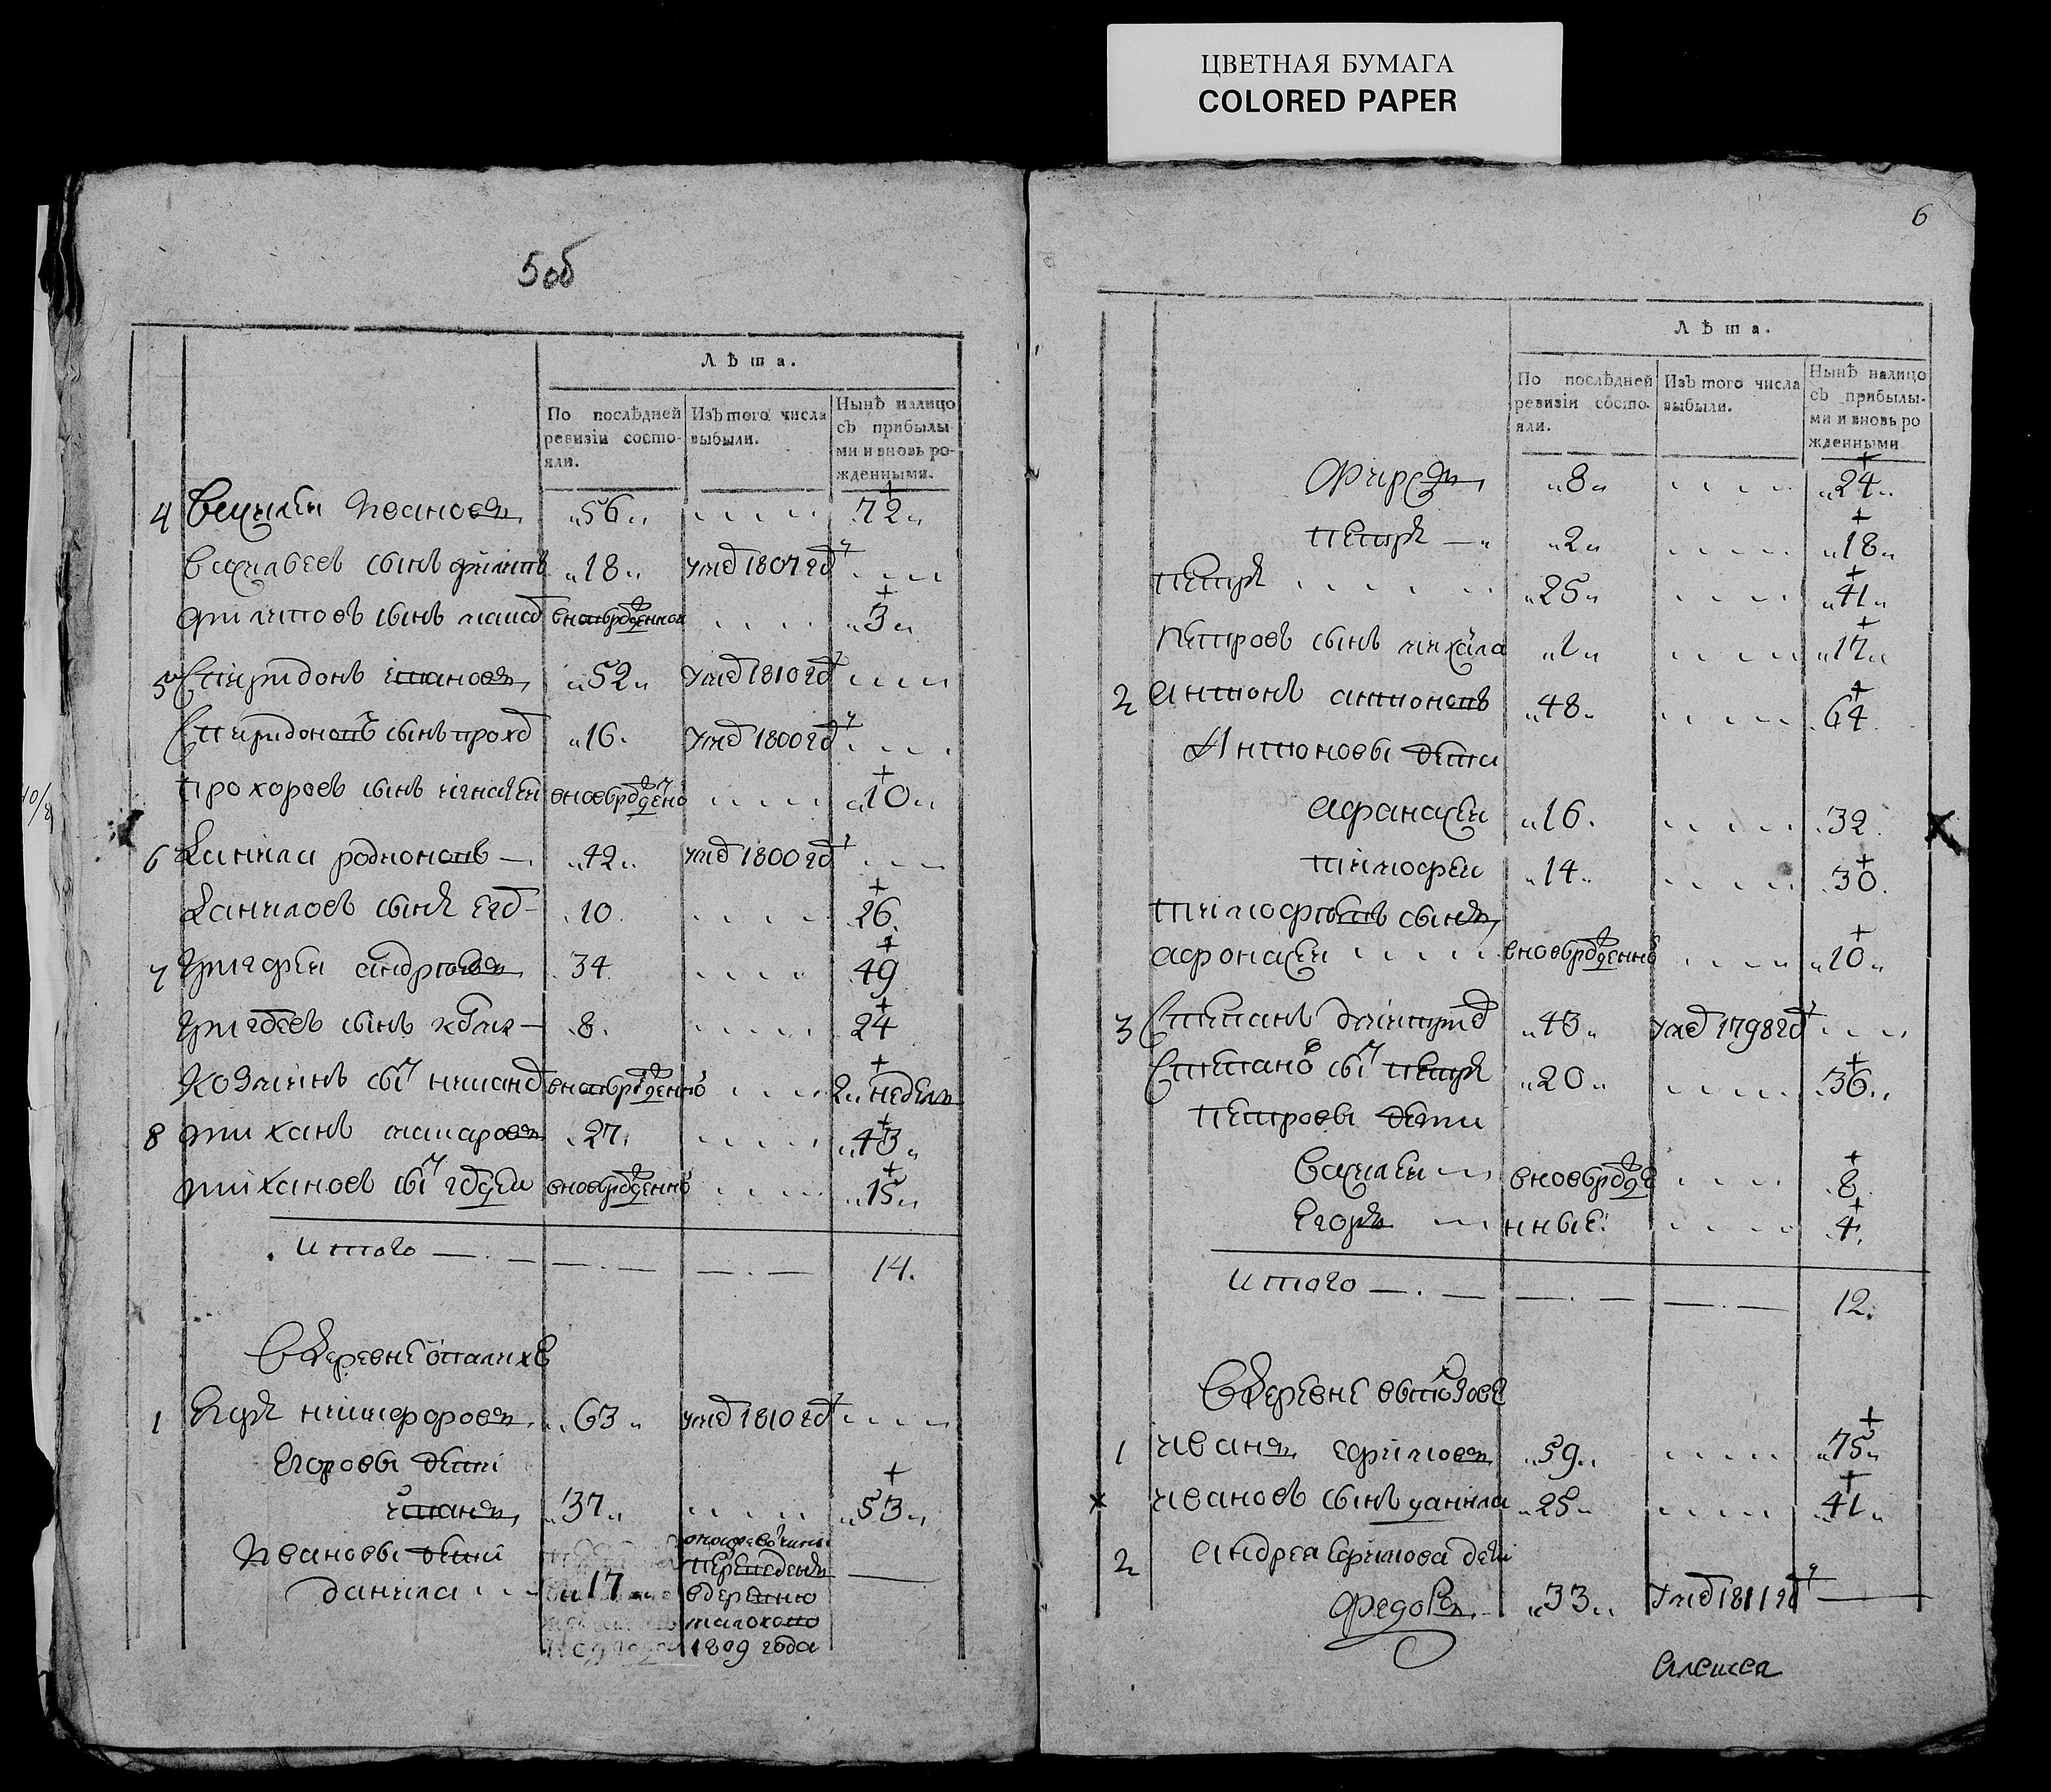 ЦВЕТНАЯ БУМАГА
COLORED PAPER
5 об
Лѣта.
По послѣдней ревизіи состо-яли.
Изъ того числа выбыли.
Нынѣ налицо съ прибылы-ми и вновь ро-жденными.
4 Василеи Ивановъ „56„ 72„
Васильевъ сынъ филипъ „18„ умеръ 1807 год
филиповъ сынъ „3„
5 Спиридонъ Степановъ „52„ умеръ 1810 год
Спиридоновъ сынъ прохор „16. умеръ 1800 год
прохоровъ сынъ игнатеи вновьрожденой „10„
6 Данила родионовъ „42„ умеръ 1800 год
Даниловъ сынъ егор 10. 26.
7 григореи андреевъ 34. 49
григоревъ сынъ козма 8. 24
Козминъ сынъ вновьрожденной 2 недели
8 тиханъ макаровъ 27. „43„
тихановъ сынъ вновьрожденной „15„
итого 14.
В Деревне опалихе
1 Егоръ никифоровъ „63„ умеръ 1810 год
Егоровы дети
„37„ „53„
Ивановы дети
данила „17
переведенъ
в деревню
1809 года
6
Лѣта.
По послѣдней ревизіи состо-яли.
Изъ того числа выбыли.
Нынѣ налицо съ прибылы-ми и вновь ро-жденными
Фирсъ „8„ „24„
петръ „2„ „18„
петръ „25„ „41„
Петровъ сынъ михаила „1„ „17„
2 Антонъ антоновъ „48„ 64.
Антоновы дети
афанасеи „16. 32.
тимофеи „14„ 30.
тимофеевъ сынъ
афонасеи вновьрожденной „10„
3 Степанъ дмитриев „43„ умеръ 1798 год
Степановъ сынъ петръ „20„ „36„
Петровы дети
Василеи вновьрожде 8.
Егоръ нные. 4.
итого 12.
В Деревне
1 иванъ ефимовъ „59„ „75„
ивановъ сынъ данила „25„ 41„
2 Андрея Ефимова дети
Федоръ „33„ умеръ 1811 год
Алексеи